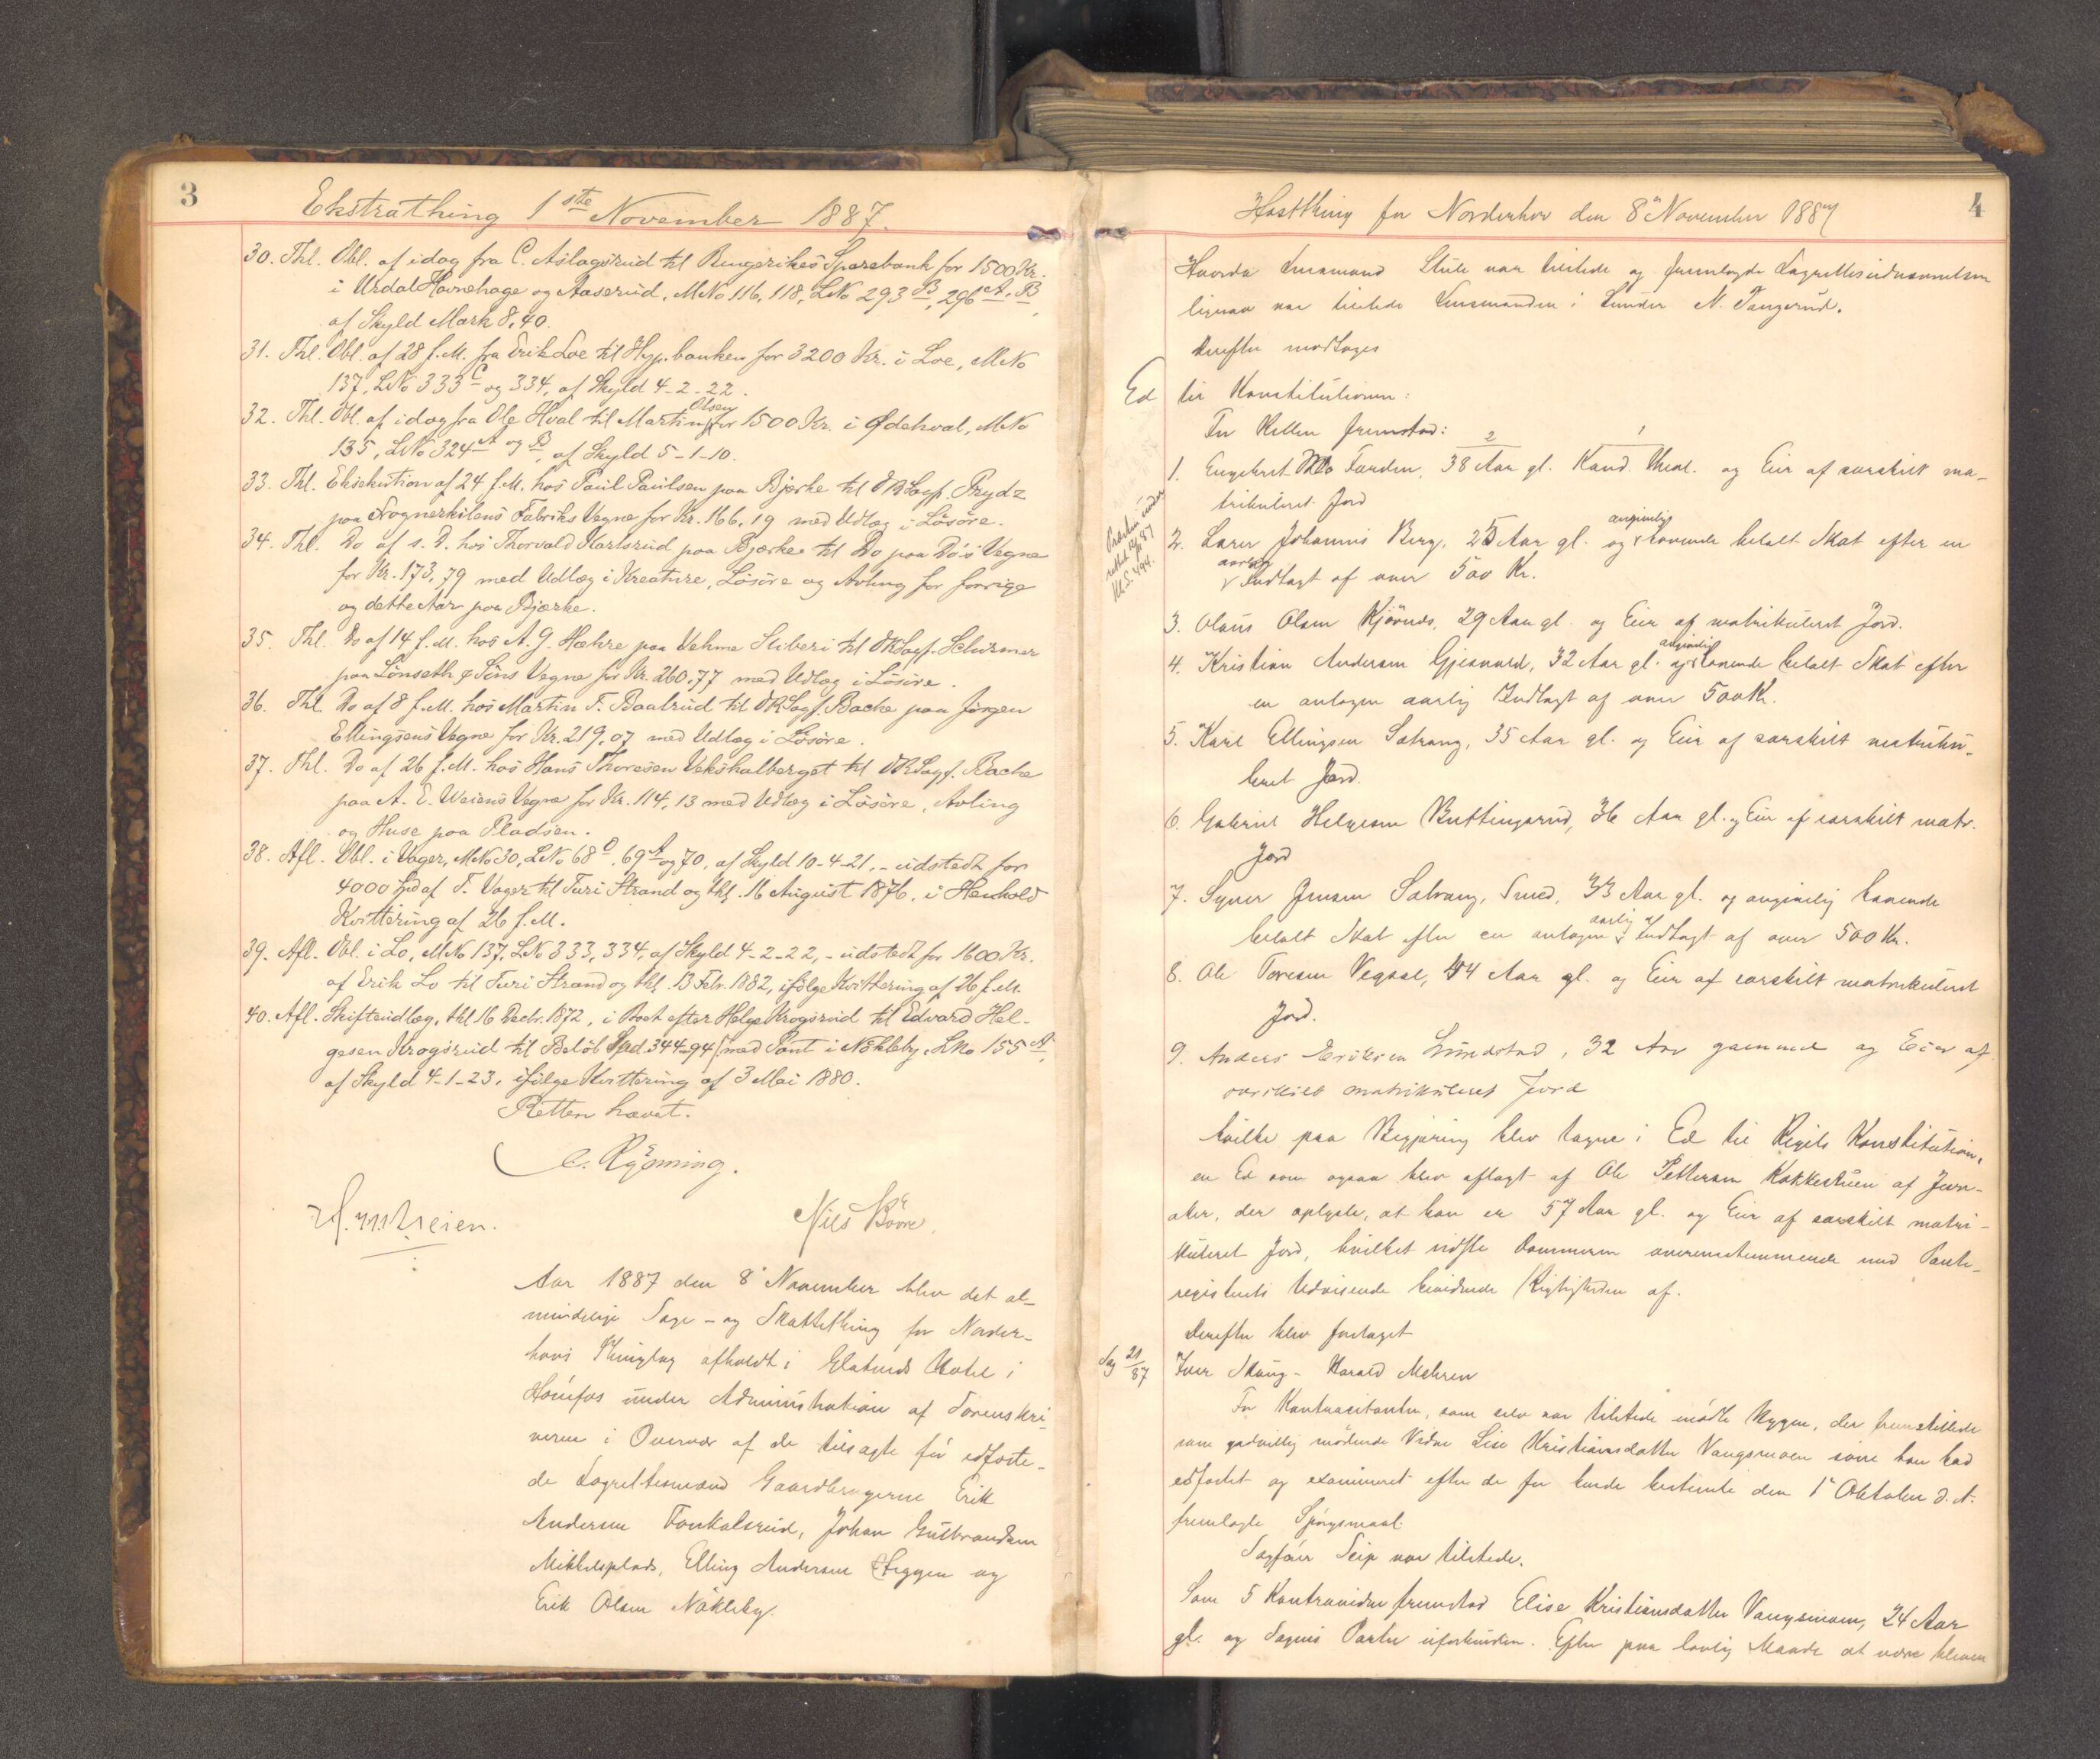 3
Ekstrathing 1ste November 1887.
30. Thl. Obl. af idag fra C. Aslagsrud til Ringerikes Sparebank for 1500 Kr.
i Ursdal Havnehage og Aaserud, MNo 116, 118, LNo 293 B, 296 A, B,
af Skyld Mark 8,40.
31. Thl. Obl. af 28 f.M. fra Erik Loe til Hyp.banken for 3200 Kr. i Loe, MNo
137, LNo 333 C og 334, af Skyld 4-2-22.
32. Thl. Obl. af idag fra Ole Hval til Martin Olsen for 1500 Kr. i Ødehval, MNo
135, LNo 324 A og B, af Skyld 5-1-10.
33. Thl. Eksekution af 24 f.M. hos Paul Paulsen paa Bjerke til ORSagf. Prydz
paa Frognerkilens Fabriks Vegne for Kr. 166,19 med Udlæg i Løsøre.
34. Thl. Do af s. D. hos Thorvald Karlsrud paa Bjerke til Do paa Do's Vegne
for Kr. 173,79 med Udlæg i Kreature, Løsøre og Avling for forrige
og dette Aar paa Bjerke.
35. Thl. Do af 14 f.M. hos A. G. Hæhre paa Vehme Sliberi til ORSagf. Schirmer
paa Lønseth & Søns Vegne for Kr. 260,77 med Udlæg i Løsøre.
36. Thl. Do af 8 f.M. hos Martin T. Baalrud til ORSagf. Bache paa Jørgen
Ellingsens Vegne for Kr. 219,07 med Udlæg i Løsøre.
37. Thl. Do af 26 f.M. hos Hans Thoresen Vekshalberget til ORSagf. Bache
paa A. E. Weiens Vegne for Kr. 114,13 med Udlæg i Løsøre, Avling
og Huse paa Pladsen.
38. Afl. Obl. i Vager, MNo 30, LNo 68 D, 69 A og 70, af Skyld 10-4-21, - udstedt for
4000 Spd af T. Vager til Turi Strand og thl. 16 August 1876, i Henhold
Kvittering af 26 f.M.
39. Afl. Obl. i Lo, MNo 137, LNo 333, 334, af Skyld 4-2-22, - udstedt for 1600 Kr.
af Erik Lo til Turi Strand og thl. 13 Febr. 1882, ifølge Kvittering af 26 f.M.
40. Afl. Skifteudlæg, thl 16 Decbr. 1872, i Boet efter Helge Krogsrud til Edvard Hel-
gesen Krogsrud til Beløb Spd. 344-94 med Pant i Nøkleby, LNo 155 A,
af Skyld 4-1-23, ifølge Kvittering af 3 Mai 1880.
Retten hævet.
C. Rynning.
Nils Børe
Aar 1887 den 8 November blev det al-
mindelige Sage- og Skattething for Norder-
hovs Thinglag afholdt i Glatveds Hotel i
Hønefos under Administration af Sorenskri-
veren i Overvær af de tilsagte før edfæste-
de Lagrettesmænd Gaardbrugerne Erik
Andersen Fonkalsrud, Johan Gulbrandsen
Mikkelsplads, Elling Andersen Heggen og
Erik Olsen Nökleby.
4
Høstthing for Norderhov den 8 November 1887
Hvorda Lensmand Stub var tilstede og fremlagde Lagrettesudnævnelsen
ligesaa var tilstede Lensmanden i Lunder N. Tangerud.
Derefter modtoges
Ed til Konstitutionen:
For Retten fremstod:
1. Engebret Moe Færden, 38 Aar gl. Kand. theol. og Eier af særskilt ma-
trikuleret Jord
2. Lærer Johannes Berg, 25 Aar gl. og angivelig havende betalt Skat efter en
aarlig Indtægt af over 500 Kr.
3. Olaus Olsen Kjörnes, 29 Aar gl. og Eier af matrikuleret Jord.
4. Kristian Andersen Gjesvold, 32 Aar gl. og angivelig havende betalt Skat efter
en antagen aarlig Indtægt af over 500 Kr.
5. Karl Ellingsen Sætrang, 35 Aar gl. og Eier af særskilt matriku-
leret Jord.
6. Gabriel Helgesen Buttingsrud, 36 Aar gl. og Eier af særskilt matr.
Jord
7. Syver Jensen Sætrang, Smed, 33 Aar gl. og angivelig havende
betalt Skat efter en antagen aarlig Indtægt af over 500 Kr.
8. Ole Toresen Vegsal, 44 Aar gl. og Eier af særskilt matrikuleret
Jord.
9. Anders Eriksen Lundstad, 32 Aar gammel og Eier af
særskilt matrikuleret Jord
hvilke paa Begjæring blev tagne i Ed til Rigets Konstitution,
en Ed som ogsaa blev aflagt af Ole Pettersen Kokkestuen af Jevn-
aker, der oplyste, at han er 57 Aar gl. og Eier af særskilt matri-
kuleret Jord, hvilket sidste Dommeren overensstemmende med Pante-
registerets Udvisende bevidnede Rigtigheden af.
Derefter blev foretaget
Sag 21/87 Iver Skaug - Harald Mehren
For Kontracitanten, som selv var tilstede mødte Rygge, der fremstillede
som godvillig mødende Vidne Lise Kristiansdatter Vangsmoen som han bad
edfæstet og examineret efter de for hende bestemte den 1 Oktober d. A.
fremlagte Spørgsmaal.
Sagfører Seip var tilstede.
Som 5 Kontravidne fremstod Elise Kristiansdatter Vangsmoen, 24 Aar
gl. og Sagens Parter uforbunden. Efter paa lovlig Maade at være bleven